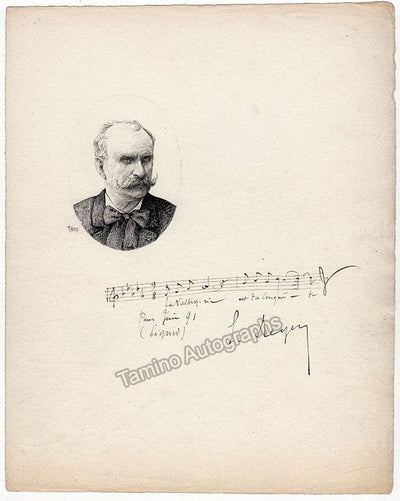 La Valkyrie est ta conquê - te
Paris Juin 91
(Sigurd)
E. Reyer
Tamino Autographs